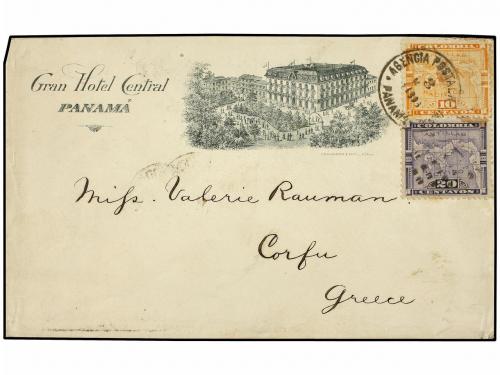 Gran Hotel Central
PANAMÁ
AGENCIA POSTAL
PANAMA
COLOMBIA
10
CENTAVOS
COLOMBIA
20
CENTAVOS
Miss Valerie Rauman
Corfu
Greece